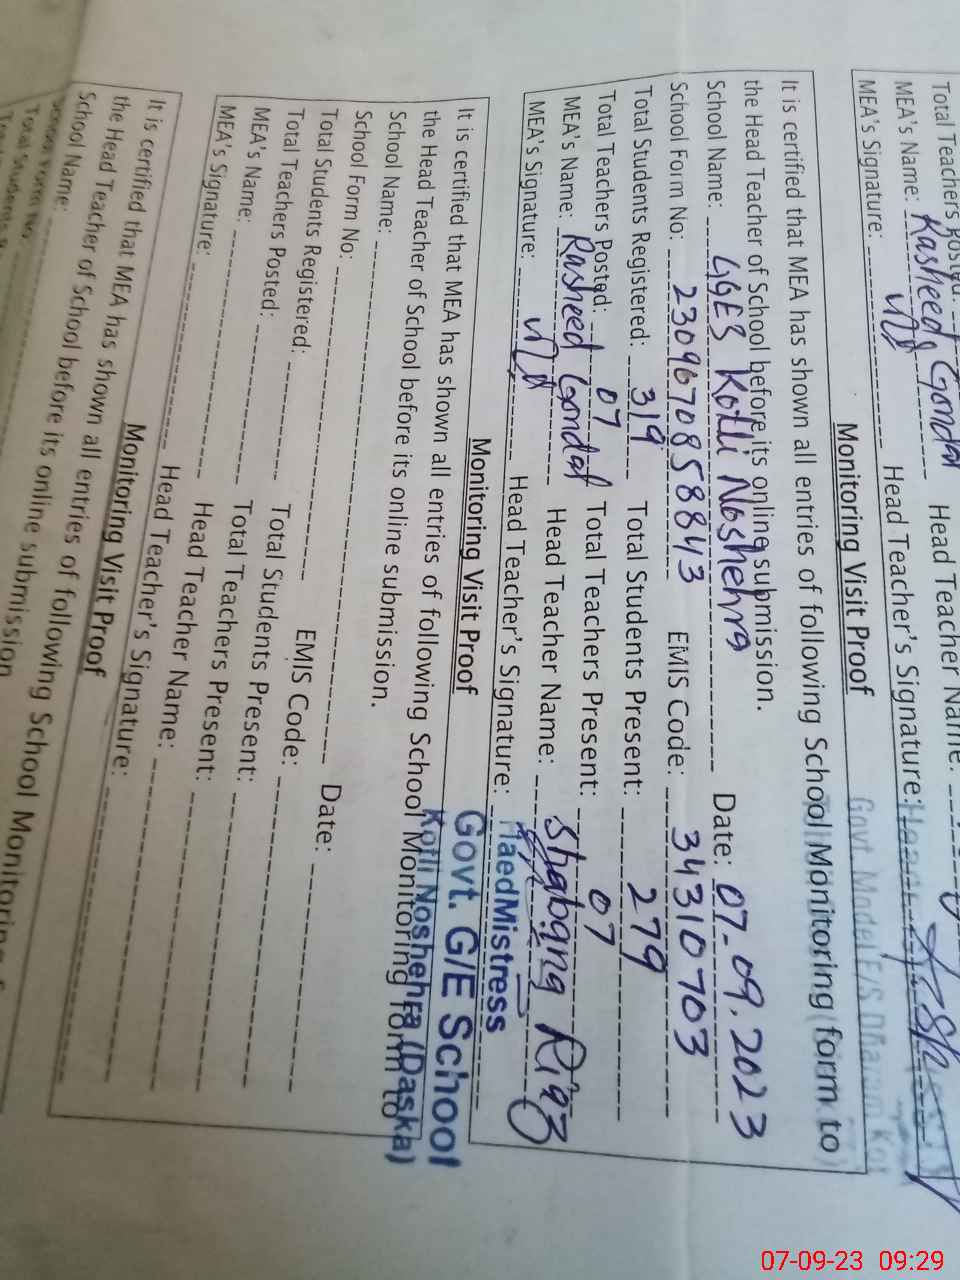 Total Teachers Posted:
MEA's Name: Rasheed Gondal Head Teacher Name:
MEA's Signature: Head Teacher's Signature:
Monitoring Visit Proof
It is certified that MEA has shown all entries of following School Monitoring form to
the Head Teacher of School before its online submission.
School Name: GGES Kotli Noshehra Date: 07-09.2023
School Form No: 2309670858843 EMIS Code: 34310703
Total Students Registered: 319 Total Students Present: 279
Total Teachers Posted: 07 Total Teachers Present: 07
MEA's Name: Rasheed Gondal Head Teacher Name: Shabana Riaz
MEA's Signature: Head Teacher's Signature:
HaedMistress
Govt. G/E School
Kotli Noshehra (Daska)
Monitoring Visit Proof
It is certified that MEA has shown all entries of following School Monitoring form to
the Head Teacher of School before its online submission.
School Name: Date:
School Form No: EMIS Code:
Total Students Registered: Total Students Present:
Total Teachers Posted: Total Teachers Present:
MEA's Name: Head Teacher Name:
MEA's Signature: Head Teacher's Signature:
Monitoring Visit Proof
It is certified that MEA has shown all entries of following School Monitoring
the Head Teacher of School before its online submission
School Name:
School Form No:
07-09-23 09:29